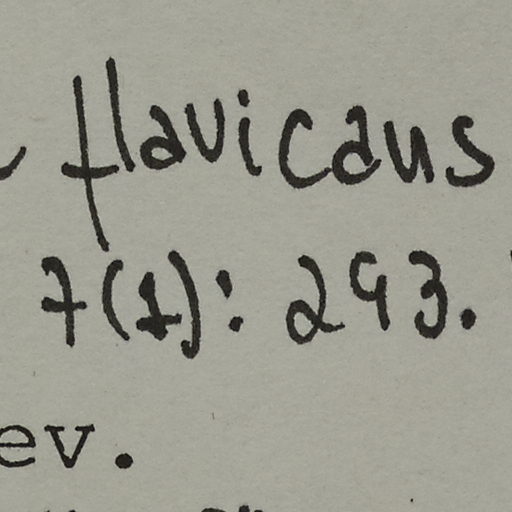 flavicans
7(1): 293.
ev.